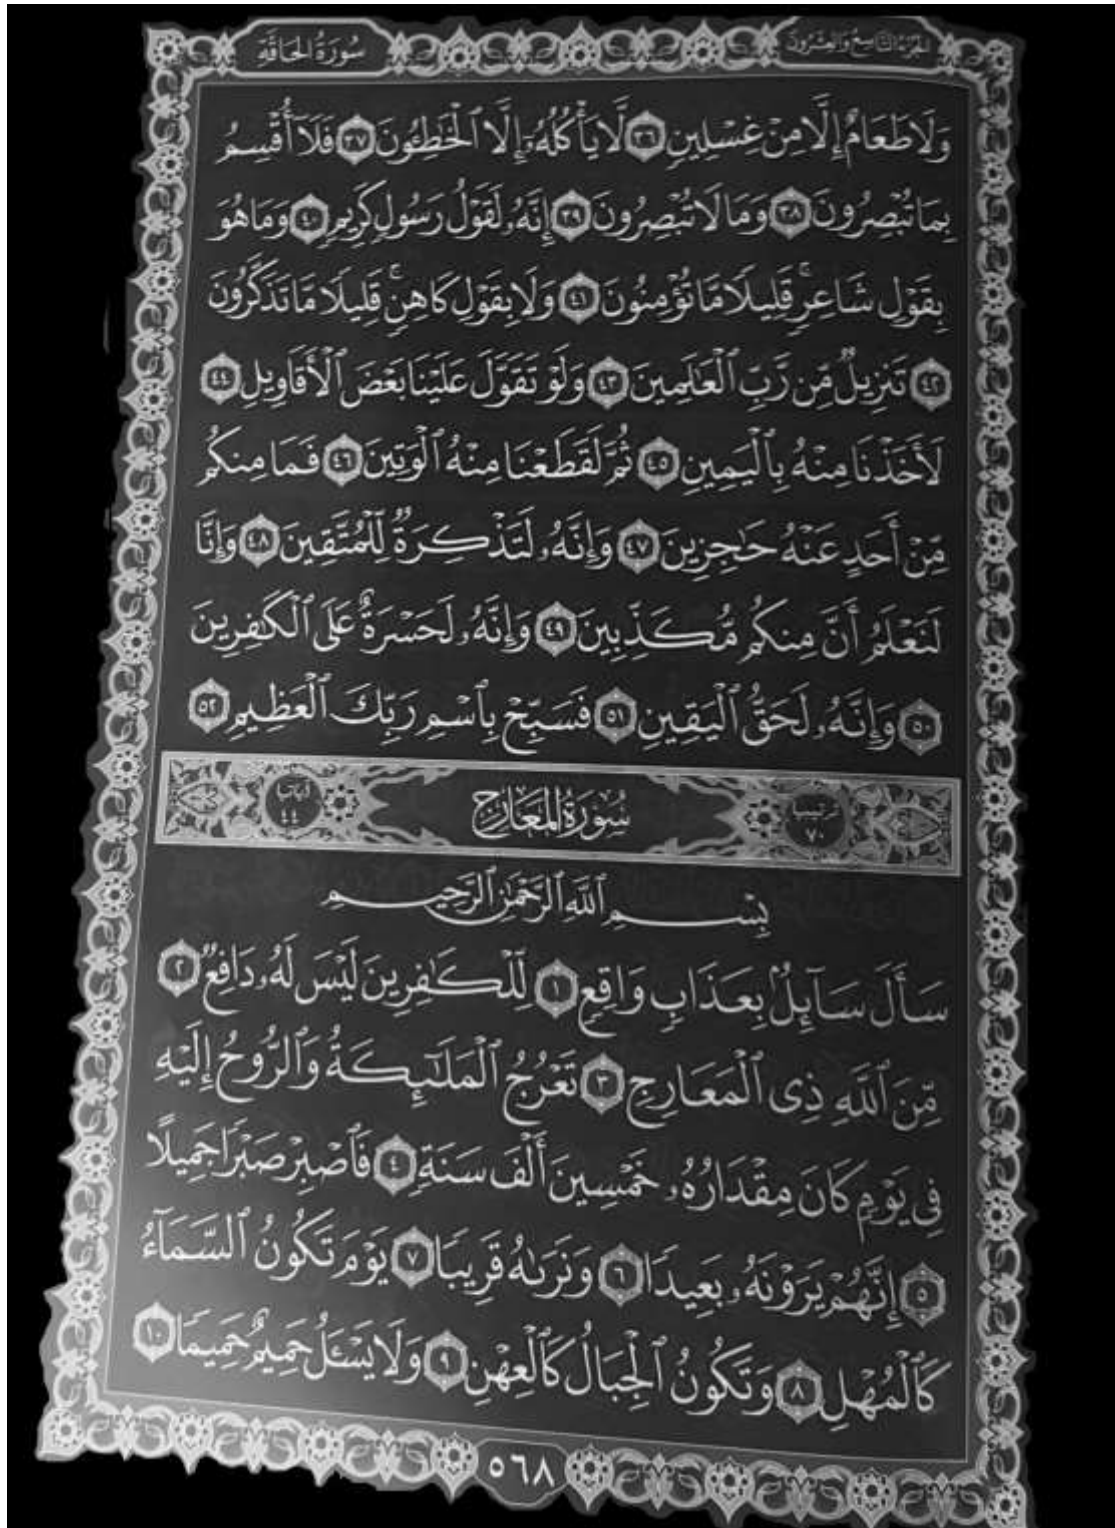 الجزء التاسع والعشرون
سُورَةُ الحَاقَّةِ
وَلَا طَعَامٌ إِلَّا مِنْ غِسْلِينٍ ٣٦ لَّا يَأْكُلُهُۥٓ إِلَّا ٱلْخَٰطِـُٔونَ ٣٧ فَلَآ أُقْسِمُ
بِمَا تُبْصِرُونَ ٣٨ وَمَا لَا تُبْصِرُونَ ٣٩ إِنَّهُۥ لَقَوْلُ رَسُولٍ كَرِيمٍ ٤٠ وَمَا هُوَ
بِقَوْلِ شَاعِرٍۚ قَلِيلًا مَّا تُؤْمِنُونَ ٤١ وَلَا بِقَوْلِ كَاهِنٍۚ قَلِيلًا مَّا تَذَكَّرُونَ
٤٢ تَنزِيلٌ مِّن رَّبِّ ٱلْعَٰلَمِينَ ٤٣ وَلَوْ تَقَوَّلَ عَلَيْنَا بَعْضَ ٱلْأَقَاوِيلِ ٤٤
لَأَخَذْنَا مِنْهُ بِٱلْيَمِينِ ٤٥ ثُمَّ لَقَطَعْنَا مِنْهُ ٱلْوَتِينَ ٤٦ فَمَا مِنكُم
مِّنْ أَحَدٍ عَنْهُ حَٰجِزِينَ ٤٧ وَإِنَّهُۥ لَتَذْكِرَةٌ لِّلْمُتَّقِينَ ٤٨ وَإِنَّا
لَنَعْلَمُ أَنَّ مِنكُم مُّكَذِّبِينَ ٤٩ وَإِنَّهُۥ لَحَسْرَةٌ عَلَى ٱلْكَٰفِرِينَ
٥٠ وَإِنَّهُۥ لَحَقُّ ٱلْيَقِينِ ٥١ فَسَبِّحْ بِٱسْمِ رَبِّكَ ٱلْعَظِيمِ ٥٢
ترتيبها ٧٠ سُورَةُ المَعَارِجِ آياتها ٤٤
بِسْمِ ٱللَّهِ ٱلرَّحْمَٰنِ ٱلرَّحِيمِ
سَأَلَ سَآئِلٌۢ بِعَذَابٍ وَاقِعٍ ١ لِّلْكَٰفِرِينَ لَيْسَ لَهُۥ دَافِعٌ ٢
مِّنَ ٱللَّهِ ذِى ٱلْمَعَارِجِ ٣ تَعْرُجُ ٱلْمَلَٰٓئِكَةُ وَٱلرُّوحُ إِلَيْهِ
فِى يَوْمٍ كَانَ مِقْدَارُهُۥ خَمْسِينَ أَلْفَ سَنَةٍ ٤ فَٱصْبِرْ صَبْرًا جَمِيلًا
٥ إِنَّهُمْ يَرَوْنَهُۥ بَعِيدًا ٦ وَنَرَىٰهُ قَرِيبًا ٧ يَوْمَ تَكُونُ ٱلسَّمَآءُ
كَٱلْمُهْلِ ٨ وَتَكُونُ ٱلْجِبَالُ كَٱلْعِهْنِ ٩ وَلَا يَسْـَٔلُ حَمِيمٌ حَمِيمًا ١٠
٥٦٨